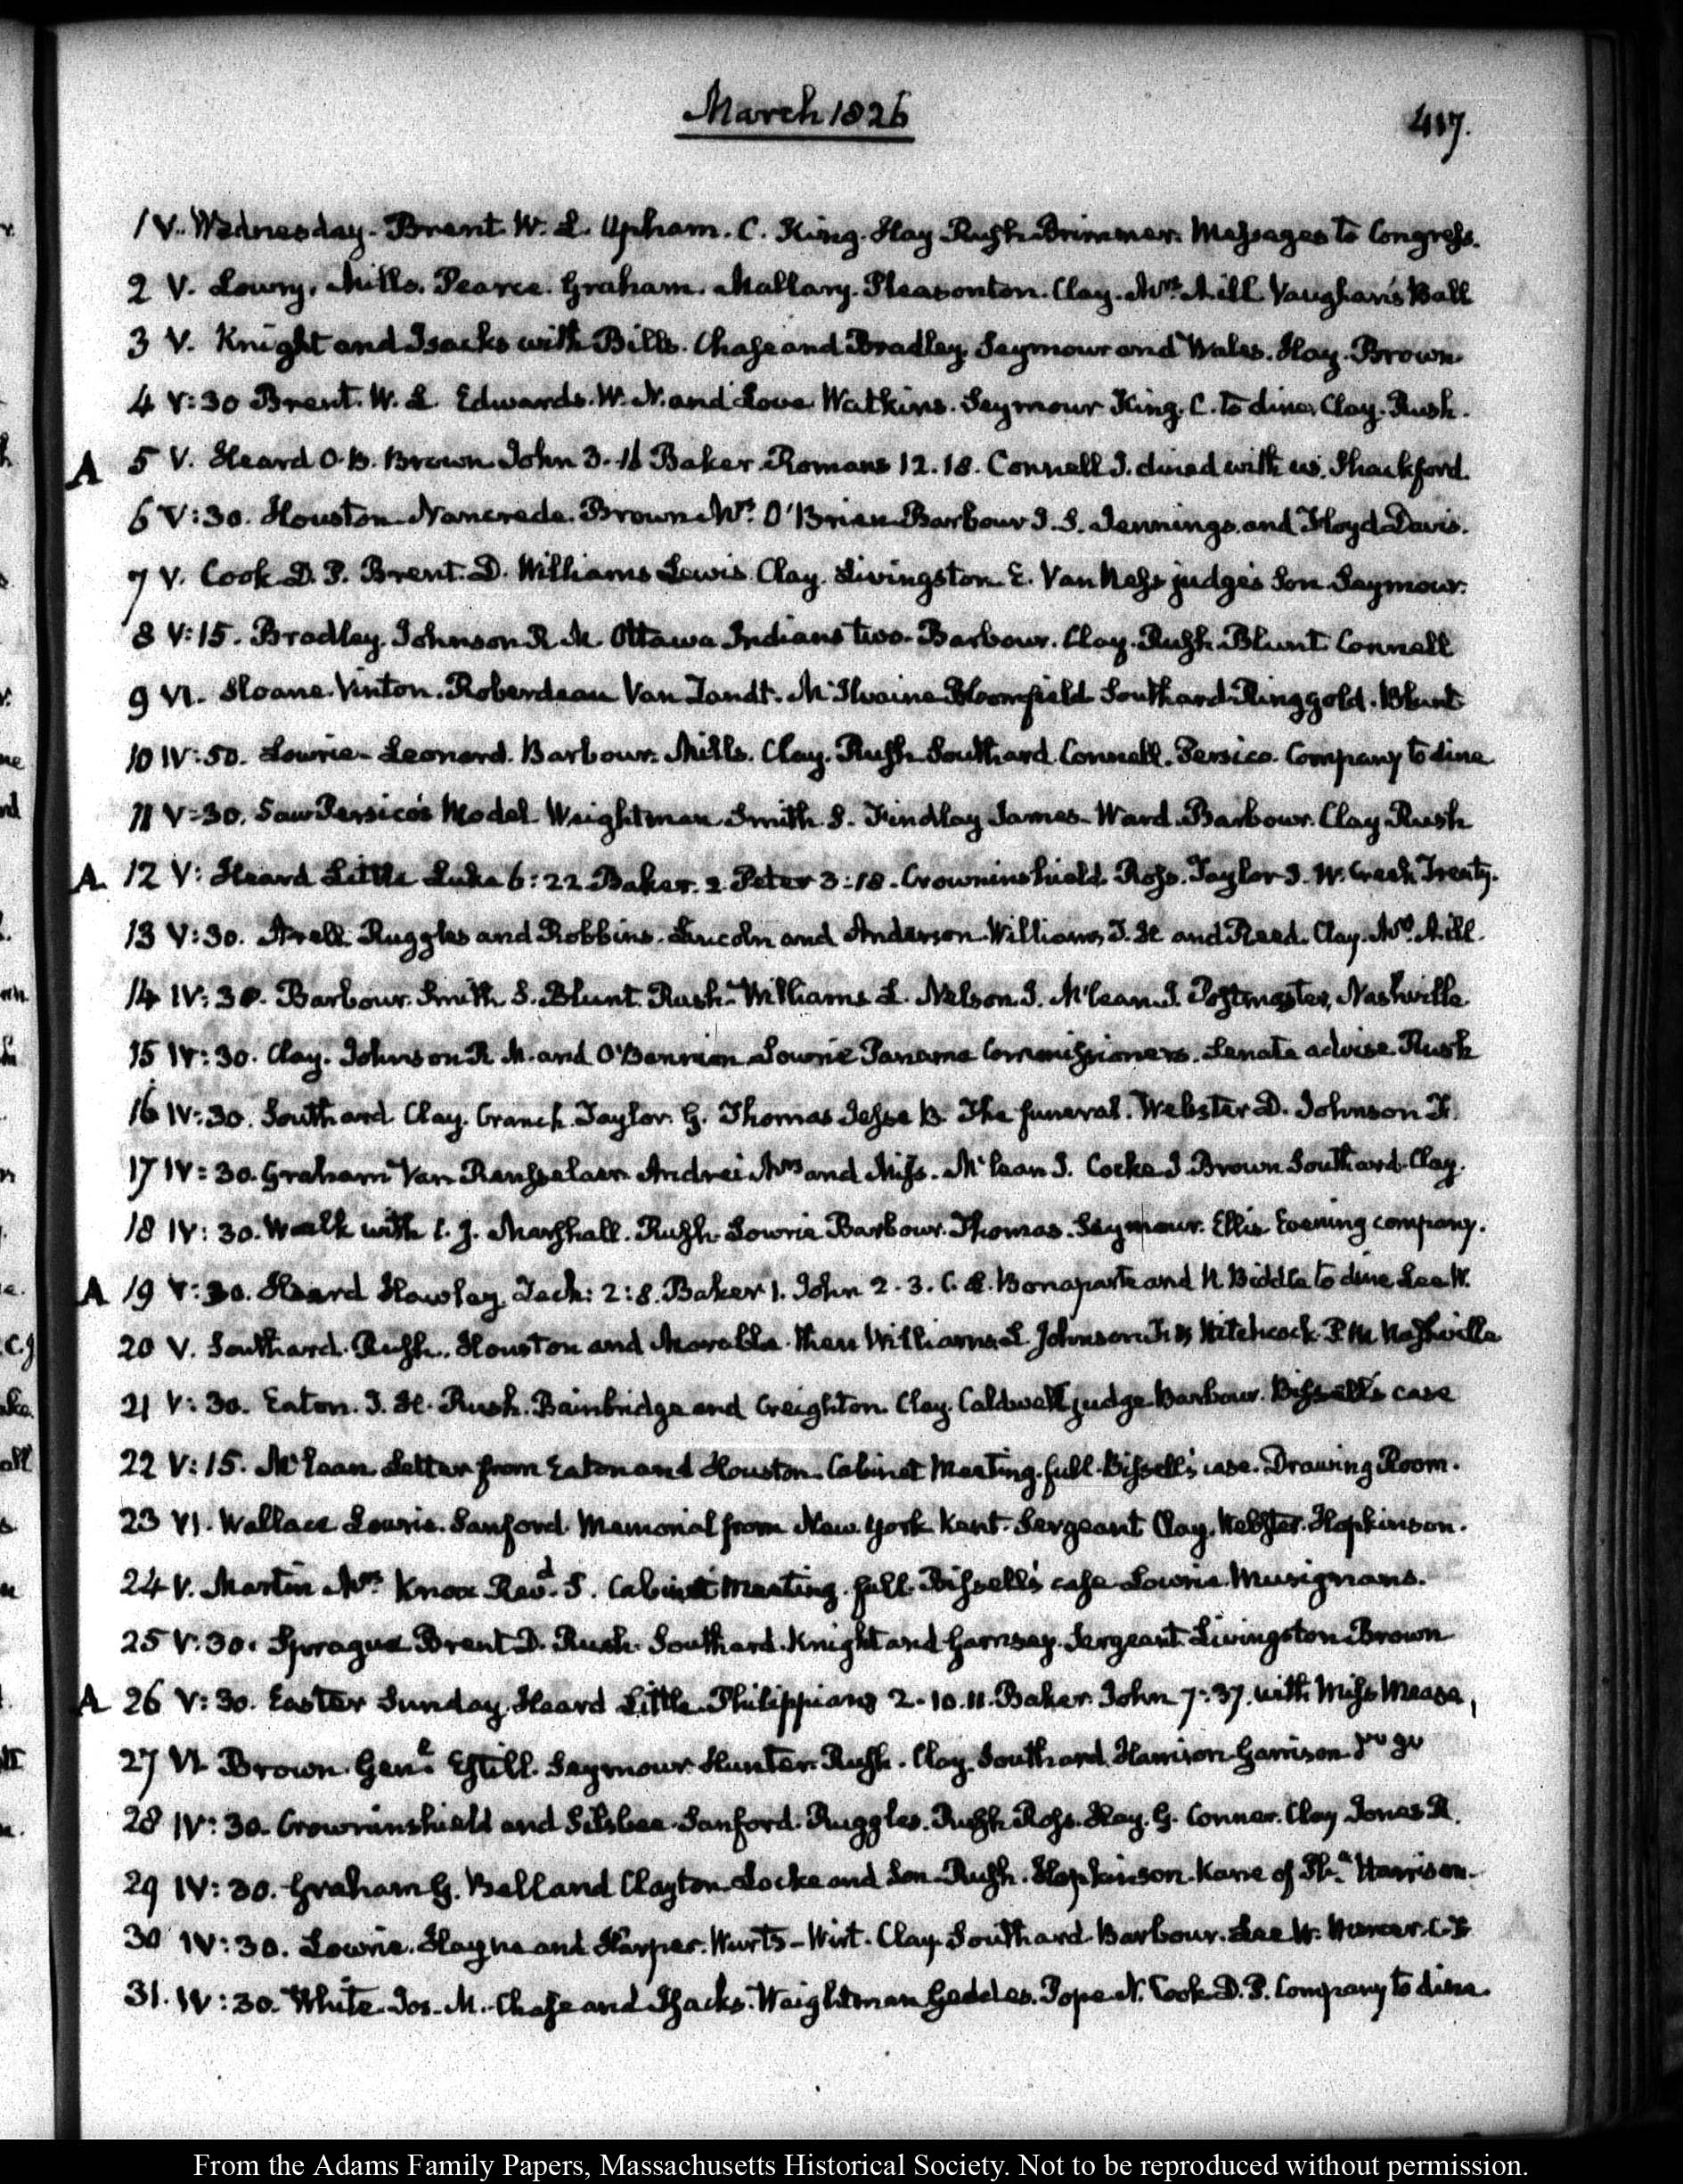 March 1826
417.
1 V. Wednesday. Brent. W. L. Upham. C. King. Hay. Rush. Brimmer. Messages to Congress.
2 V. Lowry. Mills. Pearce. Graham. Mallary. Pleasonton. Clay. Mrs. Mill Vaughan's Ball
3 V. Knight and Isacks with Bills. Chase and Bradley. Seymour and Wales. Hay. Brown
4 V:30 Brent. W. L. Edwards. W. N. and Love Watkins. Seymour King. C. to dine. Clay. Rush.
A 5 V. Heard O. B. Brown John 3. 16 Baker Romans 12. 18. Connell J. dined with us. Shackford.
6 V:30. Houston. Nancrede. Brown. Mr. O'Brien. Barbour J. S. Jennings. and Floyd Davis.
7 V. Cook D. P. Brent. D. Williams Lewis. Clay. Livingston E. Van Ness judge's Son Seymour.
8 V:15. Bradley. Johnson R M. Ottawa Indians two. Barbour. Clay. Rush. Blunt. Connell
9 VI. Sloane. Vinton. Roberdeau Van Zandt. McIlvaine Bloomfield Southard Ringgold. Blunt
10 IV:50. Lowrie. Leonard. Barbour. Mills. Clay. Rush Southard Connell. Persico. Company to dine
11 V:30. Saw Persico's Model. Weightman Smith. S. Findlay James. Ward. Barbour. Clay Rush
A 12 V: Heard Little Luke 6:22. Baker. 2 Peter 3:18. Crowninshield. Ross. Taylor J. W. Creek Treaty.
13 V:30. Ruggles and Robbins. Lincoln and Anderson. Williams, T. H. and Reed. Clay.
14 IV:30. Barbour. Smith S. Blunt. Rush. Williams L. Nelson. J. McLean J. Postmaster, Nashville.
15 IV:30. Clay. Johnson R. M. and O'Bannion Lowrie Panama Commissioners. Senate advise. Rush
16 IV:30. Southard Clay. Cranch. Taylor. G. Thomas Jesse B. The funeral. Webster D. Johnson F.
17 IV:30. Graham Van Rensselaer. Andrei Mrs and Miss. McLean J. Cocke J. Brown Southard. Clay.
18 IV:30. Walk with C. J. Marshall. Rush. Lowrie Barbour. Thomas. Seymour. Ellis Evening company.
A 19 V:30. Heard Hawley Zach: 2:8. Baker 1. John 2. 3. C. L. Bonaparte and N Biddle to dine Lee W.
20 V. Southard. Rush. Houston and Marable. then Williams L Johnson F. Hitchcock. P. M. Nashville
21 V:30. Eaton. J. H. Rush. Bainbridge and Creighton Clay. Caldwell judge. Barbour. Bissell's case
22 V:15. McLean Letter from Eaton and Houston. Cabinet Meeting. full. Bissell's case. Drawing Room.
23 VI. Wallace Lowrie. Sanford. Memorial from New York Kent. Sergeant Clay. Webster. Hopkinson.
24 V. Martin Mrs. Knox Revd. S. Cabinet Meeting. full. Bissell's case Lowrie Musignano.
25 V:30. Sprague Brent D. Rush. Southard. Knight and Garnsey. Sergeant. Livingston Brown
A 26 V:30. Easter Sunday. Heard Little Philippians 2. 10. 11. Baker. John 7:37. with Miss Mease,
27 VI. Brown. Genl. Estill. Seymour Hunter. Rush. Clay. Southard. Harrison Garrison
28 IV:30. Crowninshield and Silsbee. Sanford. Ruggles. Rush Ross. Hay. G. Conner. Clay Jones R.
29 IV:30. Graham G. Bell and Clayton Locke and Son Rush. Hopkinson. Kane of Pha. Harrison.
30 IV:30. Lowrie. Hayne and Harper. Wurts. Wirt. Clay. Southard. Barbour. Lee W. Mercer. C. F
31. IV:30. White. Jos. M. Chase and Isacks. Weightman Geddes. Pope N. Cook D. P. Company to dine.
From the Adams Family Papers, Massachusetts Historical Society. Not to be reproduced without permission.